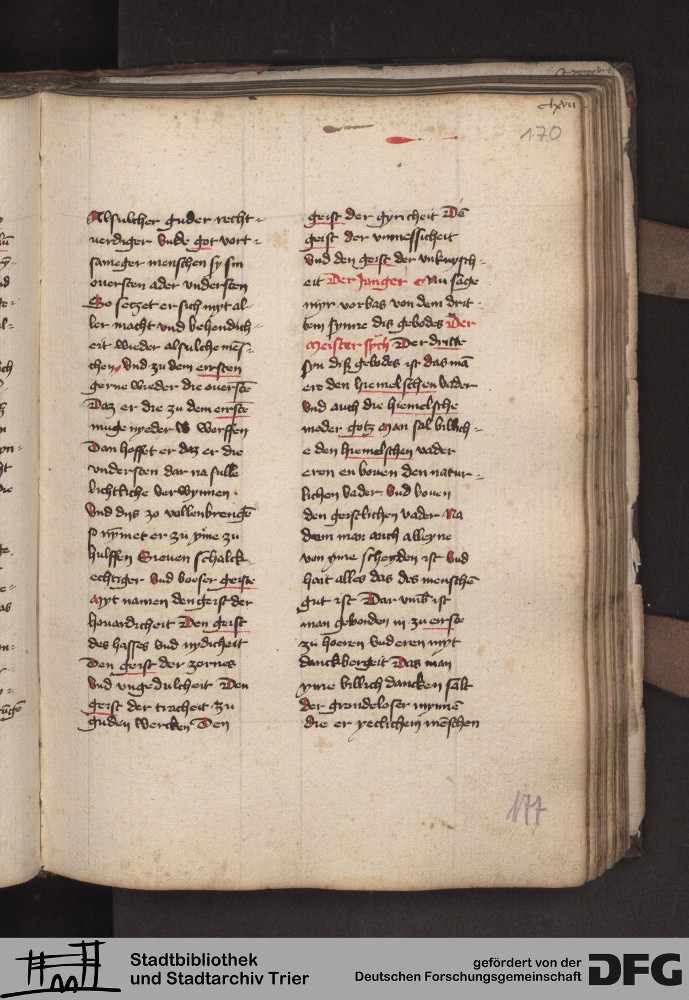 clxvii
170
Alsulcher guder recht-
uerdiger Vnde got vort-
sameger menschen sy sin
ouersten ader vndersten
So setzet er sich myt al-
ler macht vnd behendich-
eit wieder alsulche mēs-
chen Vnd zu dem eirsten
gerne wieder die ouerstē
Daz er die zu dem eirstē
muge nyeder werffen
Dan hoffet er daz er die
vndersten dar na sulle
lichtliche verwynnen
Vnd dus zo vollenbrengē
so nymet er zu yme zu
hulffen Sieuen schalck
echtiger Vnd boeser geiste
Myt namen den geist der
houardicheit Den geist
des hasses Vnd nydicheit
Den geist der zornes
Vnd vngedultcheit Den
geist der tracheit zu
guden wercken Den
geist der gyricheit Dē
geist der vnmessicheit
Vnd den geist der vnkuysch-
eit Der Junger Nu sage
myr vorbas von dem drit-
tem synne dis gebodes Der
Meister spch Der dritte
syn diß gebodes ist das mā
ere den hiemelschen vader
Vnd auch die hiemelsche
moder gotz Man sal billich-
e den hiemelschen vader
eren en bouen den natur-
lichen vader Vnd bouen
den geistlichen vader Na
dem man auch alleyne
von yme scheyden ist Vnd
hait alles das des menschē
gut ist Dar vmb ist
man gebonden zu eirste
zu hoeren Vnd eren myt
danckbergeit Das man
yme billich dancken salt
der grondeloser mynnē
die er yeclichem mēschen
177
Stadtbibliothek
und Stadtarchiv Trier
gefördert von der
Deutschen Forschungsgemeinschaft
DFG